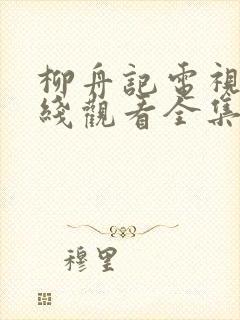 柳舟記電視
綫觀看全集
穆里